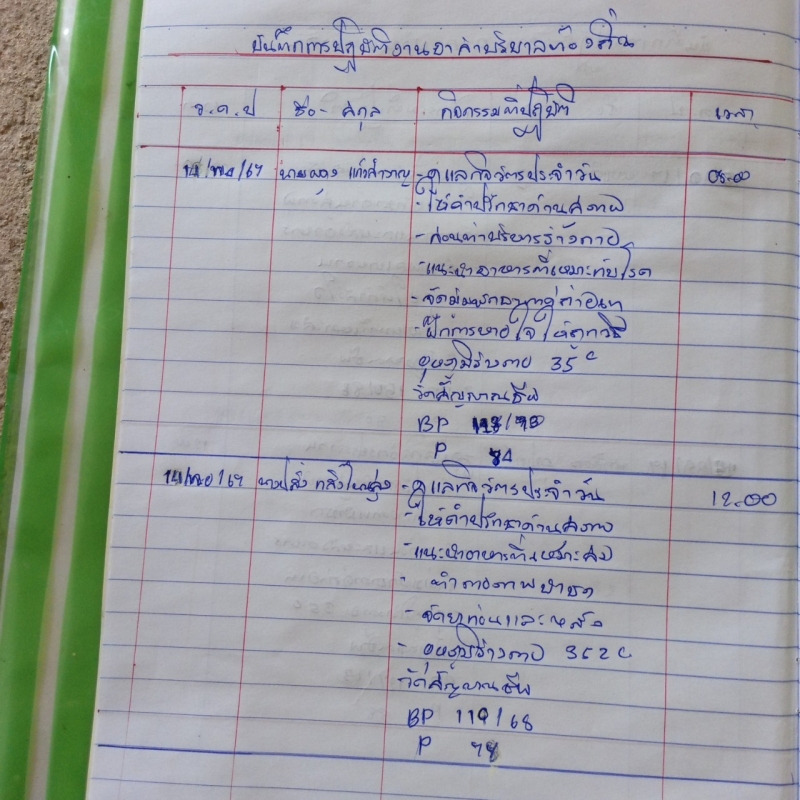 บันทึกการปฏิบัติงานอาสาบริบาลท้องถิ่น
ว.ด.ป ชื่อ- สกุล กิจกรรมที่ปฏิบัติ เวลา
14/พค/67 แก้วสำราญ - ดูแลกิจวัตรประจำวัน 08.00
- ให้คำปรึกษาด้านสุขภาพ
- สอนท่าบริหารร่างกาย
- แนะนำอาหารที่เหมาะกับโรค
- ฝึกการหายใจให้ถูกวิธี
อุณภูมิร่างกาย 35 c
วัดสัญญาณชีพ
BP 118/70
P 84
14/พค/67 - ดูแลกิจวัตรประจำวัน 12.00
- ให้คำปรึกษาด้านสุขภาพ
- แนะนำอาหารที่เหมาะสม
- ทำกายภาพบำบัด
- จัดยาก่อนและหลัง
- อุณภูมิร่างกาย 36.2 c
วัดสัญญาณชีพ
BP 119/68
P 78